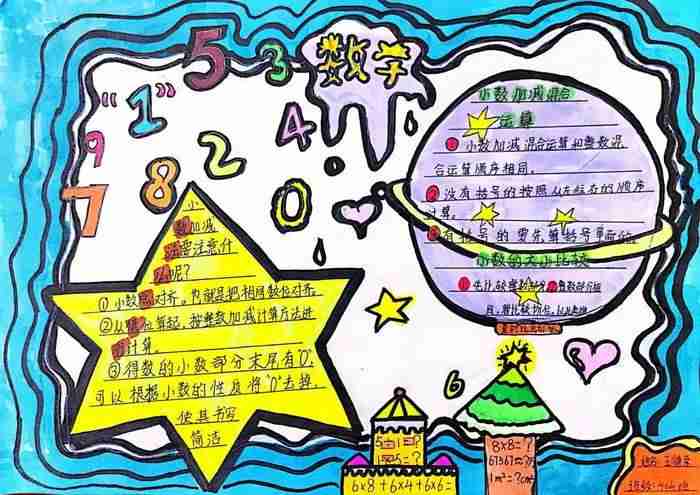 数学
5
3
"1"
4
9
2
8
7
0
小数加减混合
运算
①小数加减混合运算和整数混
合运算顺序相同。
②没有括号的按照从左往右的顺序
计算。
③有括号的要先算括号里面的。
小数的大小比较
①先比较整数部分
小
数加减
法需要注意什
么呢?
①小数点对齐,也就是把相同数位对齐。
②从低位算起,按整数加减计算方法进
行计算。
③得数的小数部分末尾有"0",
可以根据小数的性质将"0"去掉,
使其书写
简洁
6
8×8=?
1m³=?cm³
6×8+6×4+6×6=